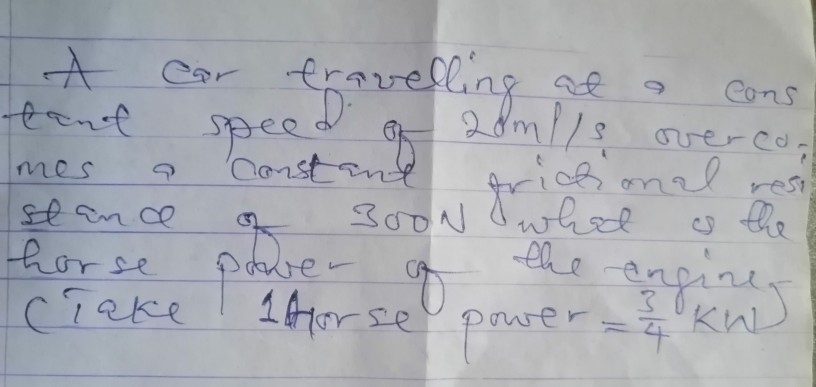 A car travelling at a cons
tant speed of 20m/s overco-
mes a constant frictional resi
stance of 300N what is the
horse power of the engine,
(Take 1Horse power = 3/4 KW)